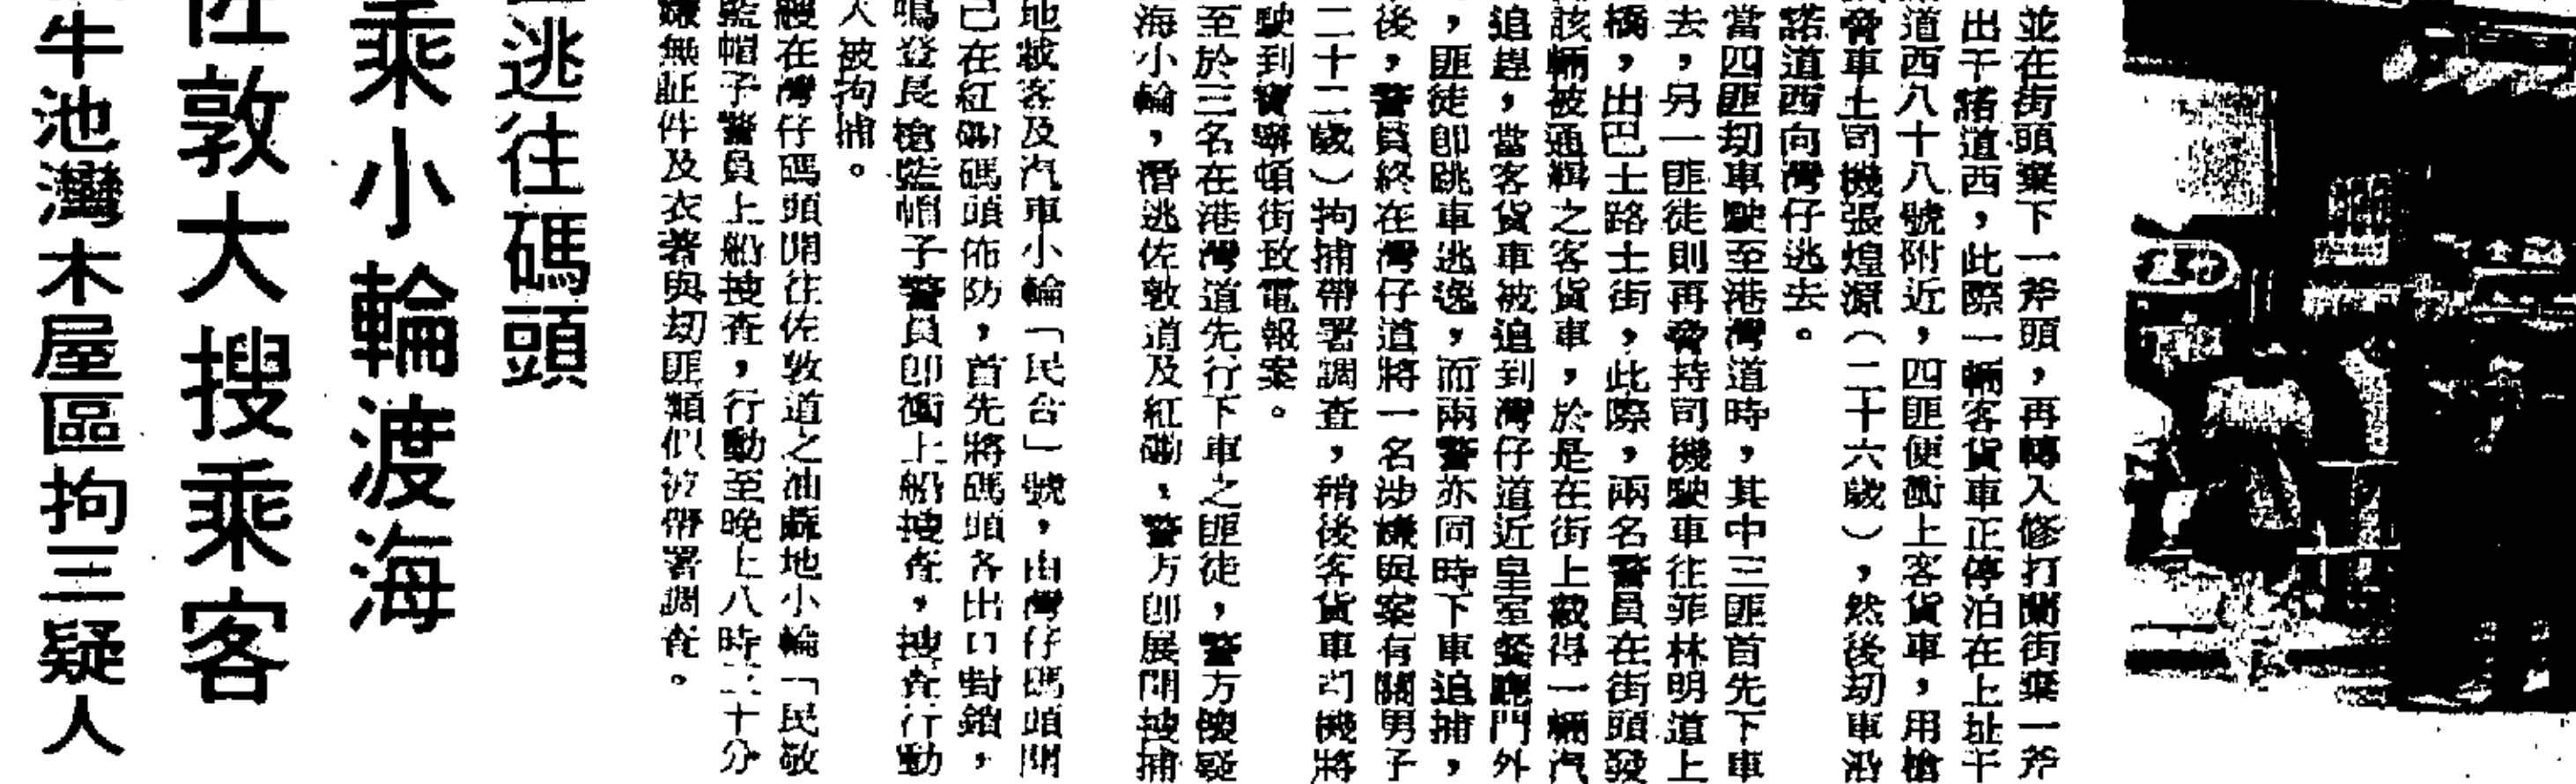 並在街頭棄下一斧頭，再轉入修打蘭街棄一斧
出干諾道西，此際一輛客貨車正停泊在上址干
道西八十八號附近，四匪便衝上客貨車，用槍
脅車上司機張煌源（二十六歲），然後刧車沿
諾道西向灣仔逃去。
當四匪刧車駛至港灣道時，其中三匪首先下車
去，另一匪徒則再脅持司機駛車往菲林明道上
橋，出巴士路士街，此際，兩名警員在街頭發
該輛被通緝之客貨車，於是在街上截得一輛汽
追趕，當客貨車被追到灣仔道近皇室餐廳門外
，匪徒即跳車逃逸，而兩警亦同時下車追捕，
後，警員終在灣仔道將一名涉嫌與案有關男子
二十二歲）拘捕帶署調查，稍後客貨車司機將
駛到寶寧頓街致電報案。
至於三名在港灣道先行下車之匪徒，警方懷疑
海小輪，潛逃佐敦道及紅磡，警方即展開搜捕
地載客及汽車小輪「民合」號，由灣仔碼頭開
己在紅磡碼頭佈防，首先將碼頭各出口封鎖，
鳴登長槍藍帽子警員即衝上船搜查，搜查行動
人被拘捕。
艘在灣仔碼頭開往佐敦道之油蔴地小輪「民敬
藍帽子警員上船搜查，行動至晚上八時二十分
嫌無証件及衣著與刧匪類似被帶署調查。
逃往碼頭
乘小輪渡海
佐敦大搜乘客
牛池灣木屋區拘三疑人